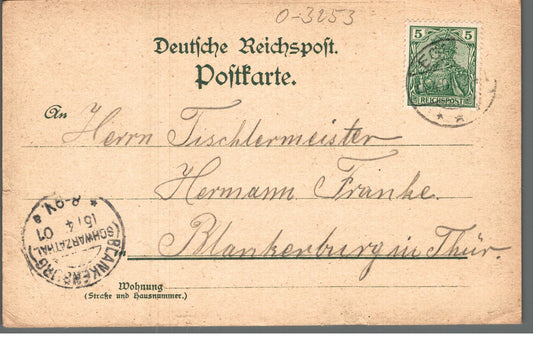 0-3253
Deutsche Reichspost.
Postkarte.
5 5
REICHSPOST
An
Herrn Tischlermeister
Hermann Franke.
Blankenburg in Thür.
* 8-9V. a
15/4
01
(SCHWARZATHAL)
BLANKENBURG
Wohnung
(Straße und Hausnummer.)